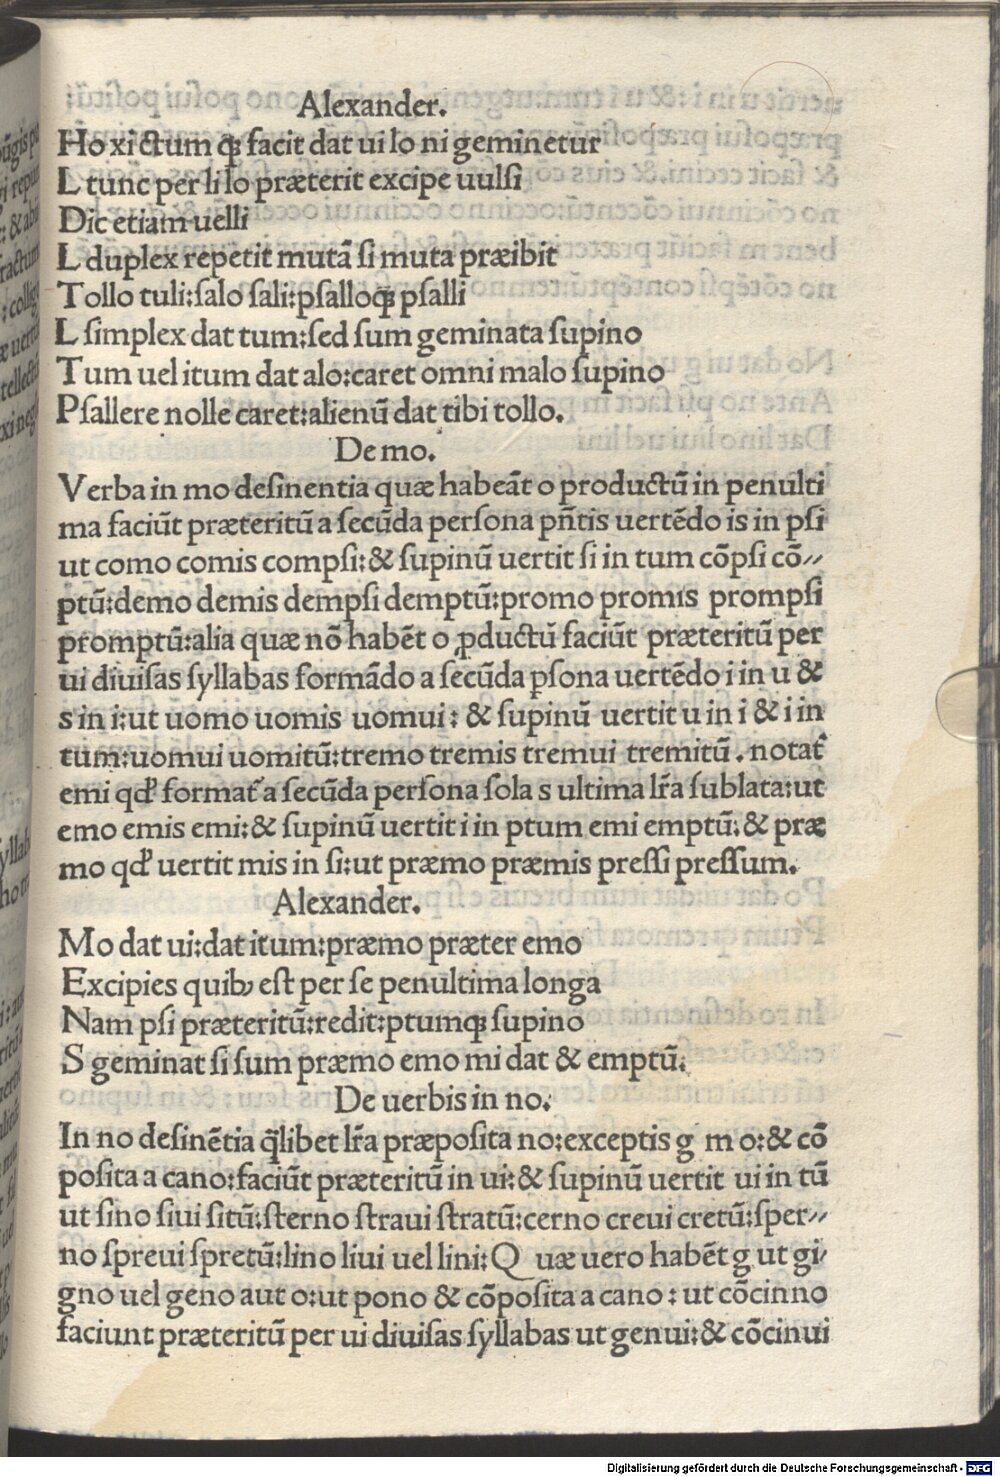 Alexander.
Ho xi ctum qꝫ facit dat ui lo ni geminetur
L tunc per li lo præterit excipe uulſi
Dic etiam uelli
L duplex repetit mutā ſi muta præibit
Tollo tuli:ſalo ſali:pſalloqꝫ pſalli
L ſimplex dat tum:ſed ſum geminata ſupino
Tum uel itum dat alo:caret omni malo ſupino
Pſallere nolle caret:alienū dat tibi tollo.
De mo.
Verba in mo deſinentia quæ habeāt o productū in penulti
ma faciūt præteritū a ſecūda perſona pñtis uertēdo is in pſi
ut como comis compſi:& ſupinū uertit ſi in tum cōpſi cō//
ptū:demo demis dempſi demptū:promo promis prompſi
promptū:alia quæ nō habēt o ꝓductū faciūt præteritū per
ui diuiſas ſyllabas formādo a ſecūda pſona uertēdo i in u &
s in i:ut uomo uomis uomui: & ſupinū uertit u in i & i in
tum:uomui uomitū:tremo tremis tremui tremitū. notat᷑
emi qđ format᷑ a ſecūda perſona ſola s ultima lr̃a ſublata:ut
emo emis emi:& ſupinū uertit i in ptum emi emptū:& præ
mo qđ uertit mis in ſi:ut præmo præmis preſſi preſſum.
Alexander.
Mo dat ui:dat itum:præmo præter emo
Excipies quibꝫ eſt per ſe penultima longa
Nam pſi præteritū:redit:ptumqꝫ ſupino
S geminat ſi ſum præmo emo mi dat & emptū.
De uerbis in no.
In no deſinētia q̄libet lr̃a præpoſita no:exceptis g m o:& cō
poſita a cano:faciūt præteritū in ui:& ſupinū uertit ui in tū
ut ſino ſiui ſitū:ſterno ſtraui ſtratū:cerno creui cretū:ſper//
no ſpreui ſpretū:lino liui uel lini:Quæ uero habēt g ut gi/
gno uel geno aut o:ut pono & cōpoſita a cano: ut cōcinno
faciunt præteritū per ui diuiſas ſyllabas ut genui:& cōcinui
Digitalisierung gefördert durch die Deutsche Forschungsgemeinschaft - DFG